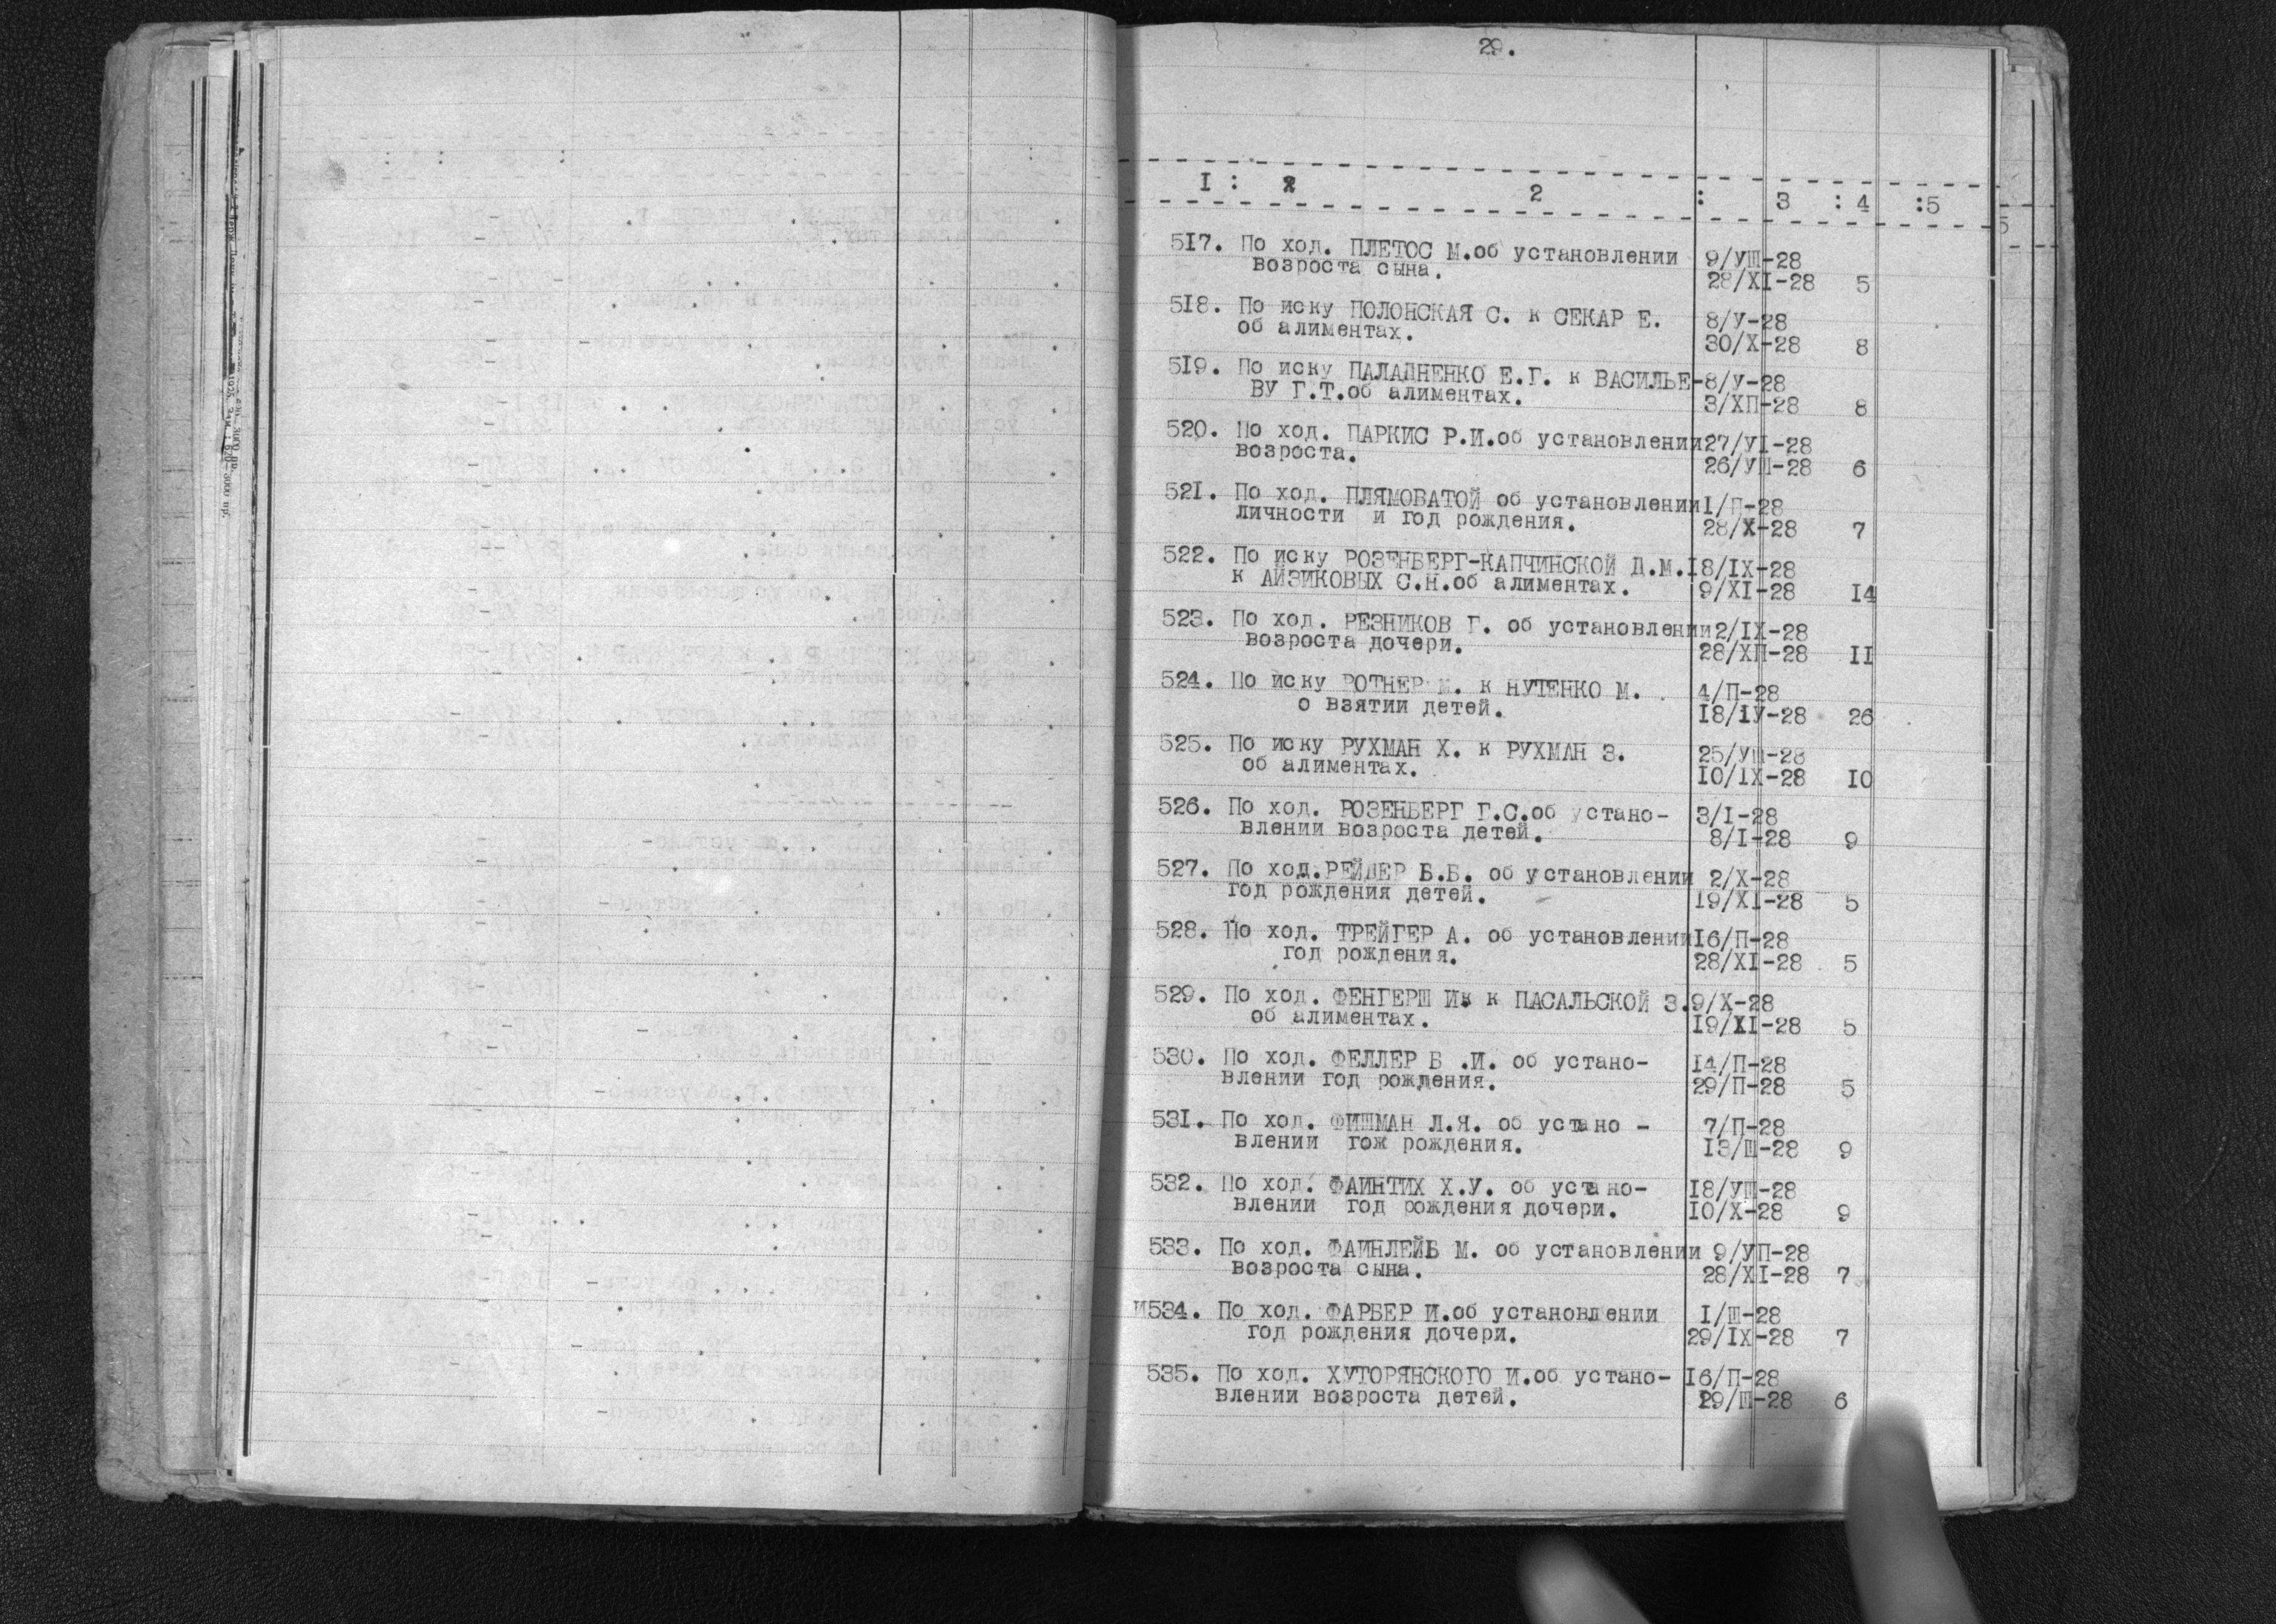 29.
I : 2 2 : 3 : 4 :5
517. По ход. ПЛЕТОС М.об установлении 9/УШ-28
возроста сына. 28/XI-28 5
518. По иску ПОЛОНСКАЯ С. к СЕКАР Е. 8/У-28
об алиментах. 30/X-28 8
519. По иску ПАЛАДНЕНКО Е.Г. к ВАСИЛЬЕ-8/У-28
ВУ Г.Т.об алиментах. 3/ХП-28 8
520. По ход. ПАРКИС Р.И.об установлении27/УI-28
возроста. 26/УШ-28 6
521. По ход. ПЛЯМОВАТОЙ об установленииI/П-28
личности и год рождения. 28/X-28 7
522. По иску РОЗЕНБЕРГ-КАПЧИНСКОЙ Д.М.I8/IX-28
к АЙЗИКОВЫХ С.Н.об алиментах. 9/XI-28 I4
523. По ход. РЕЗНИКОВ Г. об установлении2/IX-28
возроста дочери. 28/ХП-28 II
524. По иску РОТНЕР М. к НУТЕНКО М. 4/П-28
о взятии детей. I8/IУ-28 26
525. По иску РУХМАН Х. к РУХМАН З. 25/УШ-28
об алиментах. I0/IX-28 I0
526. По ход. РОЗЕНБЕРГ Г.С.об устано- 3/I-28
влении возроста детей. 8/I-28 9
527. По ход.РЕЙДЕР Б.Б. об установлении 2/X-28
год рождения детей. I9/XI-28 5
528. По ход. ТРЕЙГЕР А. об установленииI6/П-28
год рождения. 28/XI-28 5
529. По ход. ФЕНГЕРШ И. к ПАСАЛЬСКОЙ З.9/X-28
об алиментах. I9/XI-28 5
530. По ход. ФЕЛЛЕР Б .И. об устано- I4/П-28
влении год рождения. 29/П-28 5
531. По ход. ФИШМАН Л.Я. об устано - 7/П-28
влении гож рождения. I3/Ш-28 9
532. По ход. ФАИНТИХ Х.У. об устано- I8/УШ-28
влении год рождения дочери. I0/X-28 9
533. По ход. ФАИНЛЕЙБ М. об установлении 9/УП-28
возроста сына. 28/XI-28 7
И534. По ход. ФАРБЕР И.об установлении I/Ш-28
год рождения дочери. 29/IX-28 7
535. По ход. ХУТОРЯНСКОГО И.об устано- I6/П-28
влении возроста детей. 29/Ш-28 6